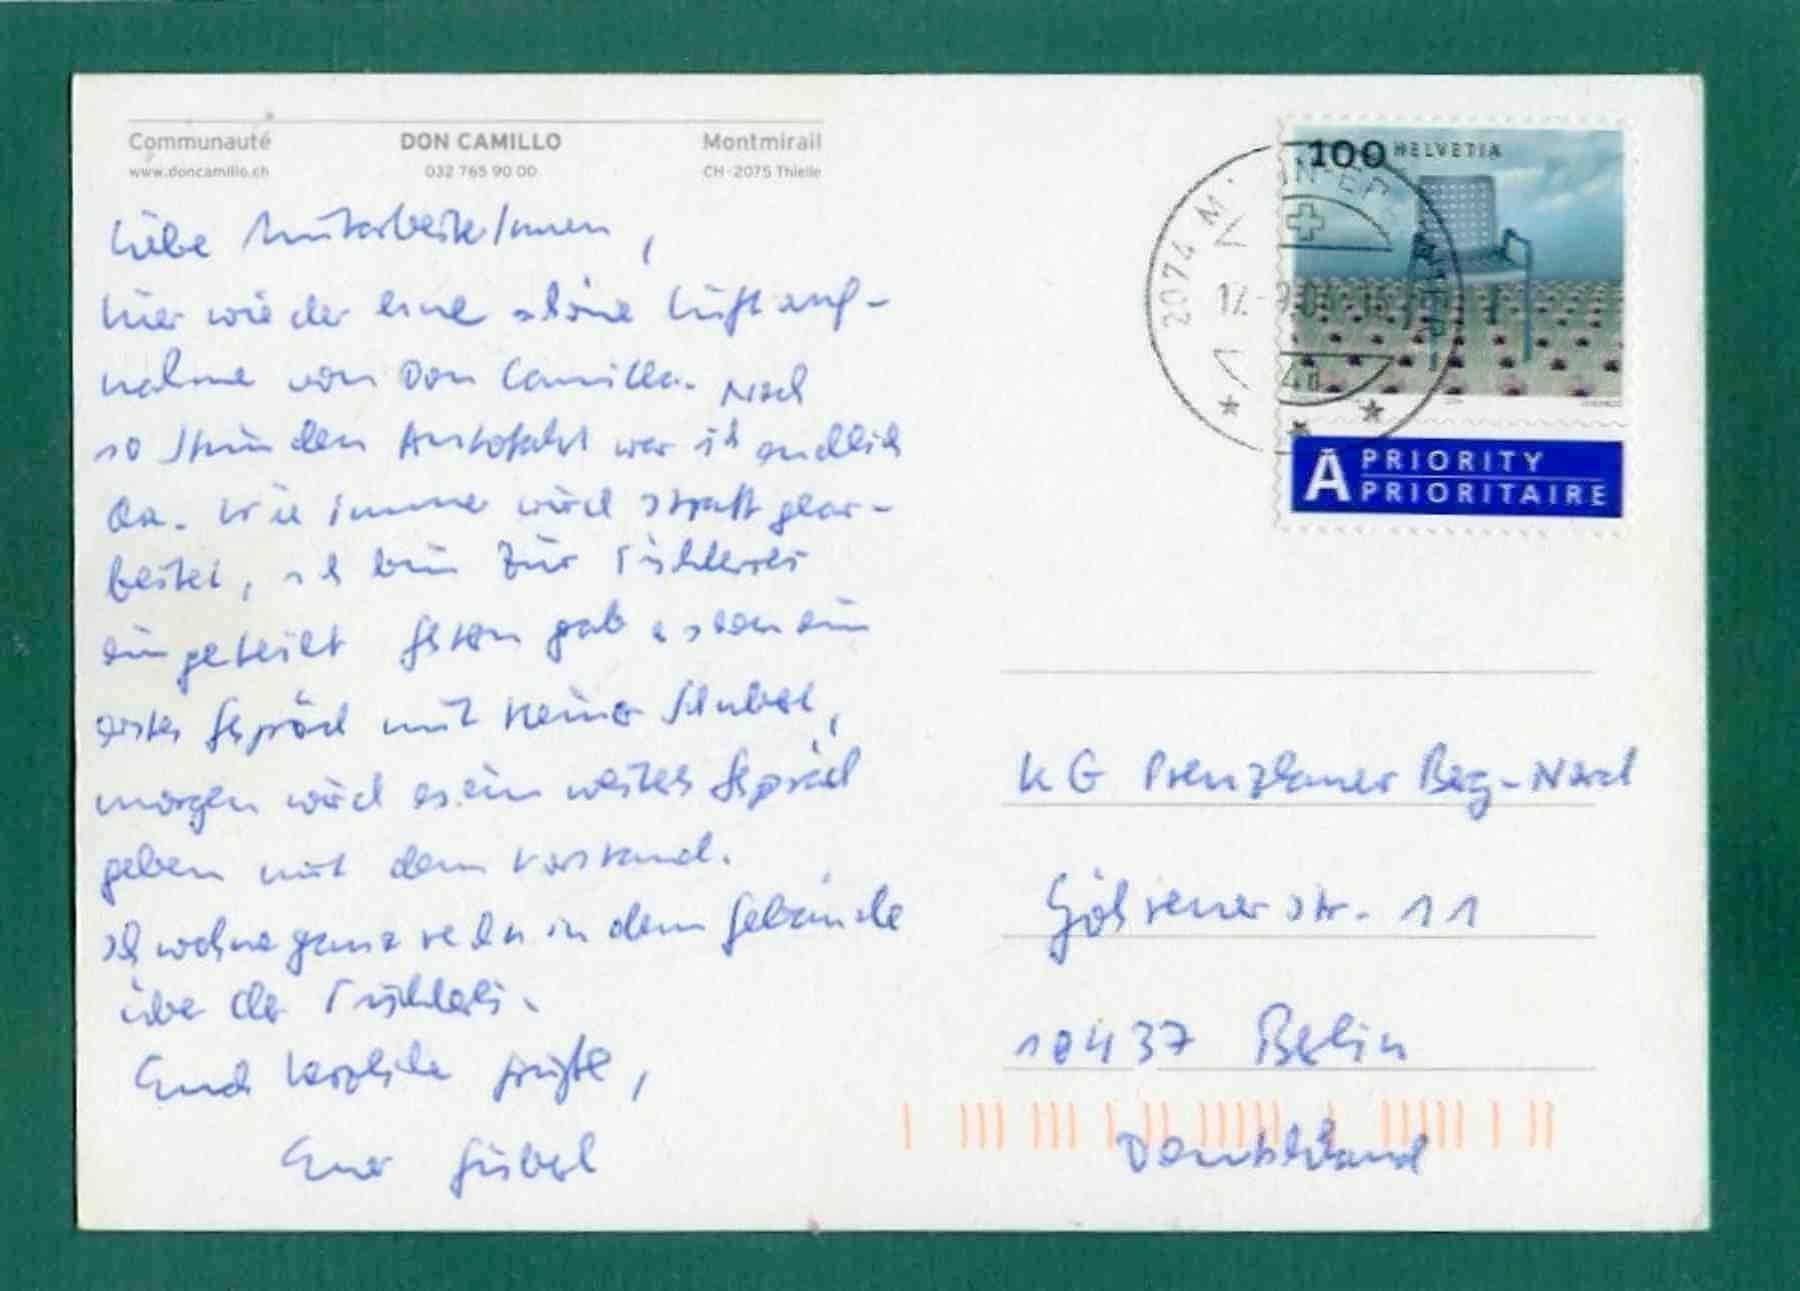 Communauté DON CAMILLO Montmirail
www.doncamillo.ch 032 765 90 00 CH-2075 Thielle
Liebe MitarbeiterInnen,
hier wieder eine schöne Luftauf-
nahme von Don Camillo. Nach
10 Stunden Autofahrt war ich endlich
da. Wie immer wird straff gear-
beitet, ich bin zur Tischlerei
eingeteilt Gestern gab es schon ein
erstes Gespräch mit Heiner Schubert,
morgen wird es ein weiteres Gespräch
geben mit dem Vorstand.
Ich wohne ganz in dem Gebäude
über der Tischlerei.
Euch herzliche Grüße,
Euer
100 HELVETIA
2074
A PRIORITY
PRIORITAIRE
KG Prenzlauer Berg-Nord
Göhrener Str. 11
10437 Berlin
Deutschland